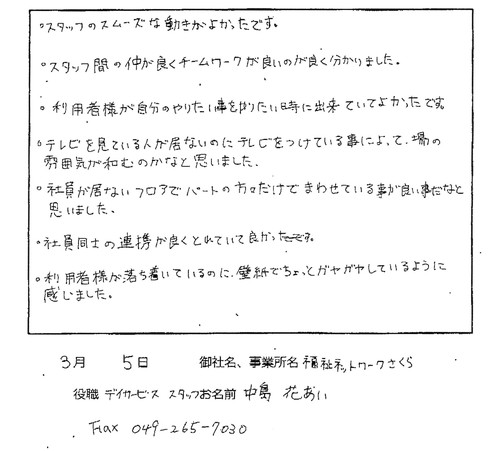 ・スタッフのスムーズな動きがよかったです。
・スタッフ間の仲が良くチームワークが良いのが良く分かりました。
・利用者様が自分のやりたい事をやりたい時に出来ていてよかったです
・テレビを見ている人が居ないのにテレビをつけている事によって、場の
雰囲気が和むのかなと思いました。
・社員が居ないフロアでパートの方々だけでまわせている事が良い事だなと
思いました。
・社員同士の連携が良くとれていて良かったです。
・利用者様が落ち着いているのに、壁紙でちょっとガヤガヤしているように
感じました。
3月 5日 御社名、事業所名 福祉ネットワークさくら
役職 デイサービス スタッフお名前 中島 花あい
Fax 049-265-7030